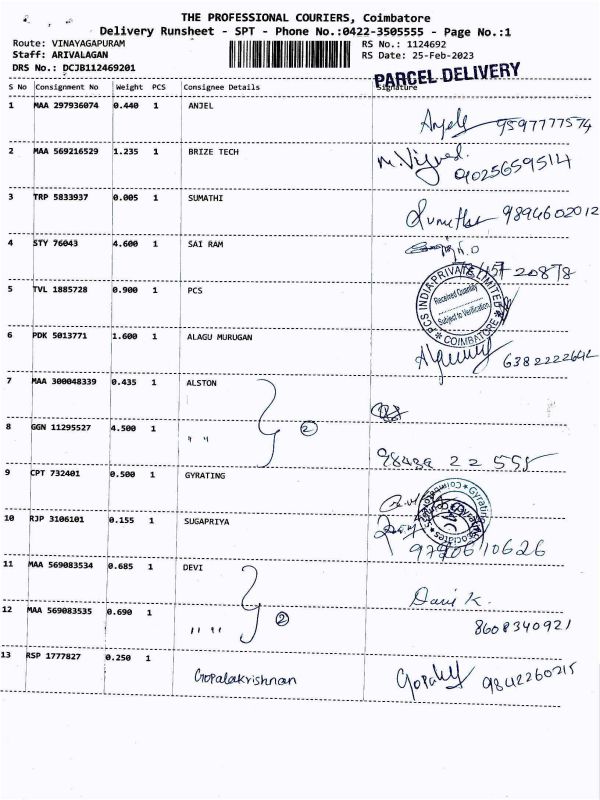 THE PROFESSIONAL COURIERS, Coimbatore
Delivery Runsheet - SPT - Phone No.:0422-3505555 - Page No.:1
Route: VINAYAGAPURAM RS No.: 1124692
Staff: ARIVALAGAN RS Date: 25-Feb-2023
DRS No.: DCJB112469201
PARCEL DELIVERY
S No Consignment No Weight PCS Consignee Details Signature
1 MAA 297936074 0.440 1 ANJEL
9597777574
2 MAA 569216529 1.235 1 BRIZE TECH
9025659514
3 TRP 5833937 0.005 1 SUMATHI
9894602012
4 STY 76043 4.600 1 SAI RAM
20878
5 TVL 1885728 0.900 1 PCS
PCS INDIA PRIVATE LIMITED
Received Quantity
Subject to Verification
* COIMBATORE *
6 PDK 5013771 1.600 1 ALAGU MURUGAN
6382222642
7 MAA 300048339 0.435 1 ALSTON
2
8 GGN 11295527 4.500 1 " "
98439 22 555
9 CPT 732401 0.500 1 GYRATING
Gyrating
10 RJP 3106101 0.155 1 SUGAPRIYA
9790610626
11 MAA 569083534 0.685 1 DEVI
Davi K.
2
12 MAA 569083535 0.690 1 " "
8608340921
13 RSP 1777827 0.250 1 Gopalakrishnan
9842260215